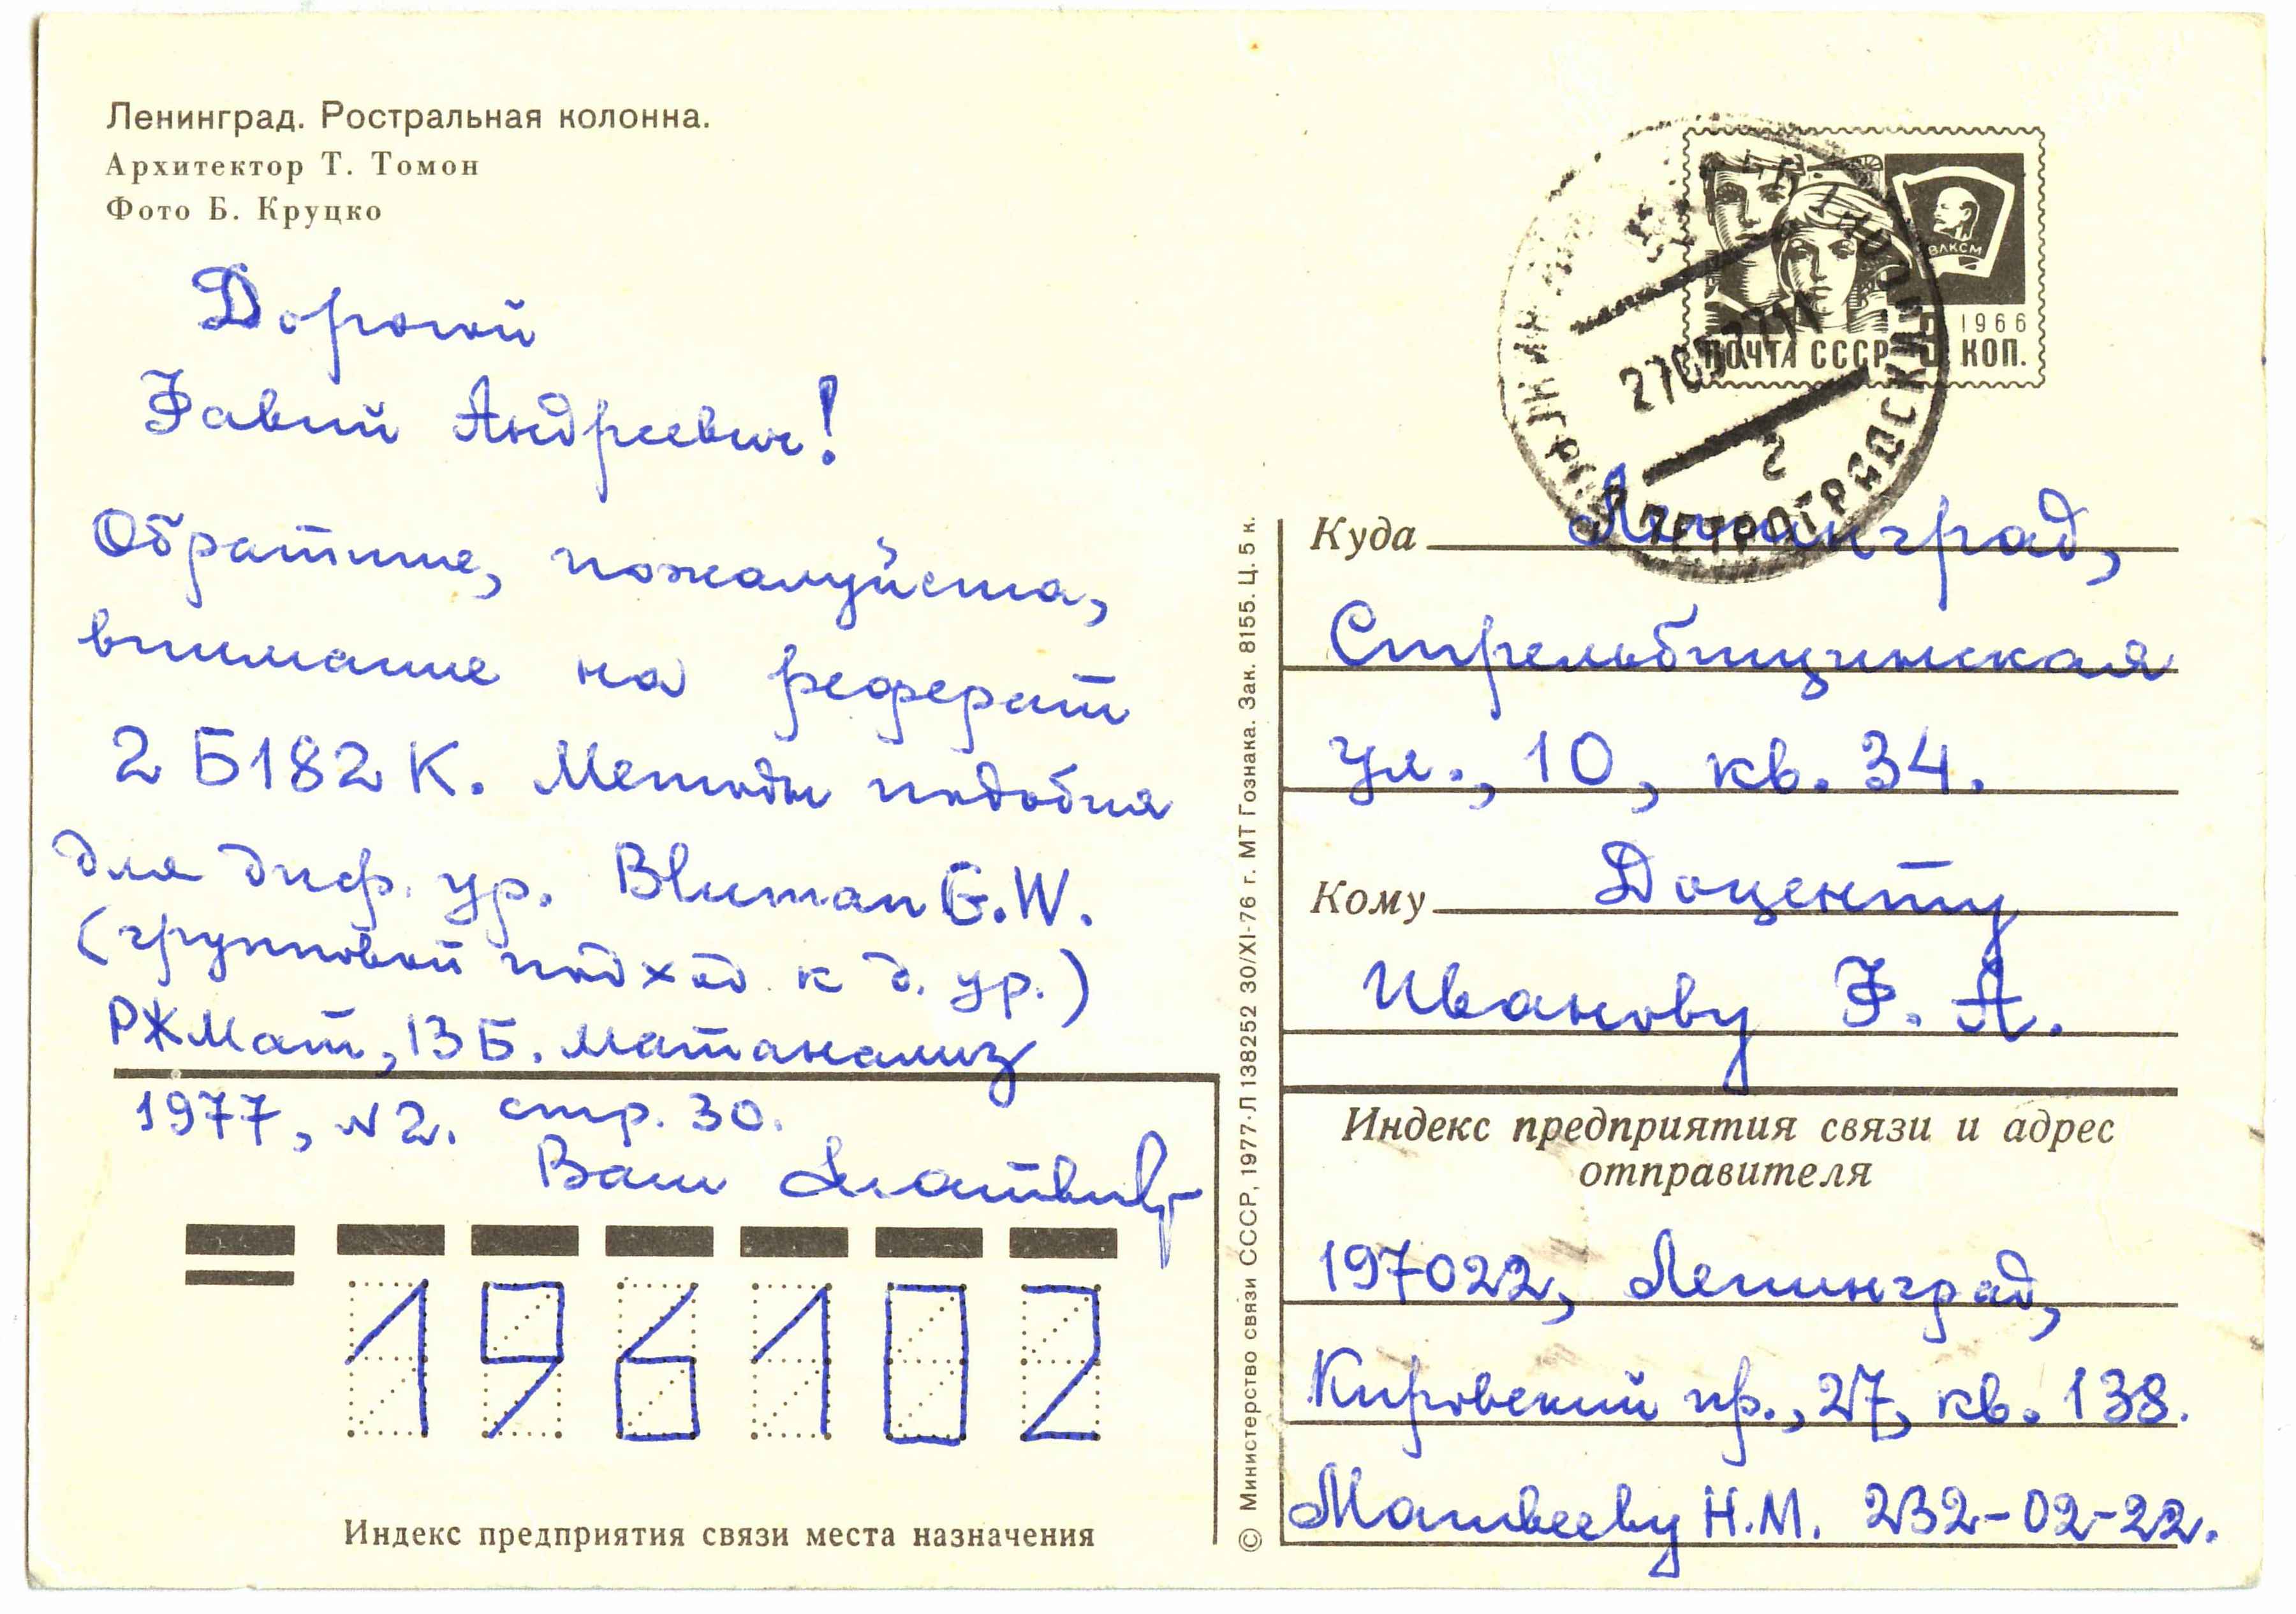 Ленинград. Ростральная колонна.
Архитектор Т. Томон
Фото Б. Круцко
Дорогой
Фавий Андреевич!
Обратите, пожалуйста,
внимание на реферат
2 Б182 К. Методы подобия
для диф. ур. Bluman G.W.
(групповой подход к д. ур.)
РЖМат, 13Б. матанализ
1977, N2. стр. 30.
Ваш
196102
Индекс предприятия связи места назначения
© Министерство связи СССР, 1977. Л 138252 30/XI-76 г. МТ Гознака. Зак. 8155. Ц. 5 к.
ВЛКСМ
1966
ПОЧТА СССР КОП.
2
ПЕТРОГРАДСКИЙ
Куда Ленинград,
Стрельбищинская
ул., 10, кв. 34.
Кому Доценту
Иванову Ф. А.
Индекс предприятия связи и адрес
отправителя
197022, Ленинград,
Кировский пр., 27, кв. 138.
Матвееву Н.М. 232-02-22.